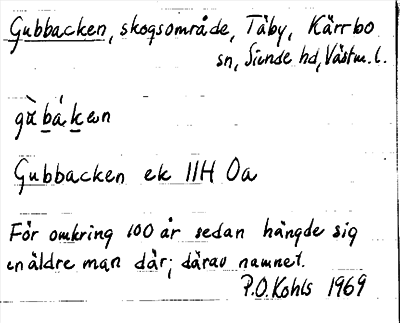 Gubbacken, skogsområde, Täby, Kärrbo
sn, Siende hd, Västm. l.
Gubbacken ek 11H 0a
För omkring 100 år sedan hängde sig
en äldre man där; därav namnet.
P.O. Kohls 1969